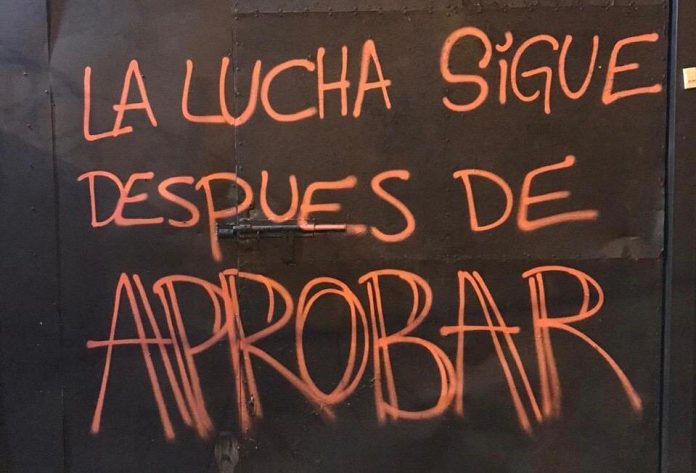 LA LUCHA SiGUE
DESPUES DE
APROBAR